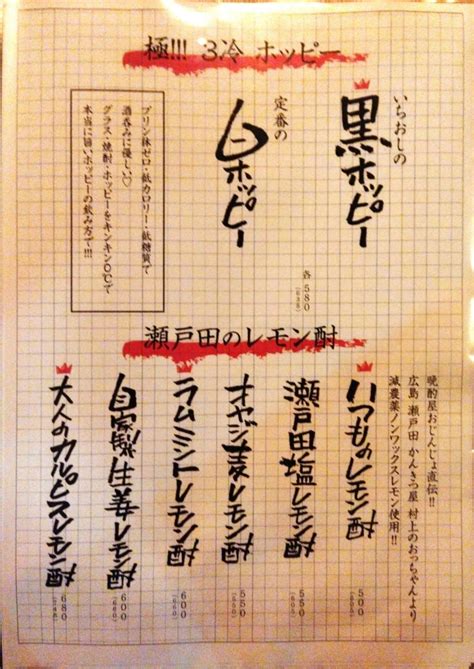 極!!! 3冷 ホッピー
いちおしの
黒ホッピー
定番の
白ホッピー
各580
プリン体ゼロ・低カロリー・低糖質で
酒呑みに優しい♡
グラス・焼酎・ホッピーをキンキン0℃で
本当に旨いホッピーの飲み方で!!!
瀬戸田のレモン酎
晩酌屋おじんじょ直伝!!
広島 瀬戸田 かんきつ屋 村上のおっちゃんより
減農薬ノンワックスレモン使用!!
いつものレモン酎
500
瀬戸田塩レモン酎
550
オヤジ麦レモン酎
550
ラムミントレモン酎
600
自家製!生姜レモン酎
600
大人のカルピスレモン酎
680